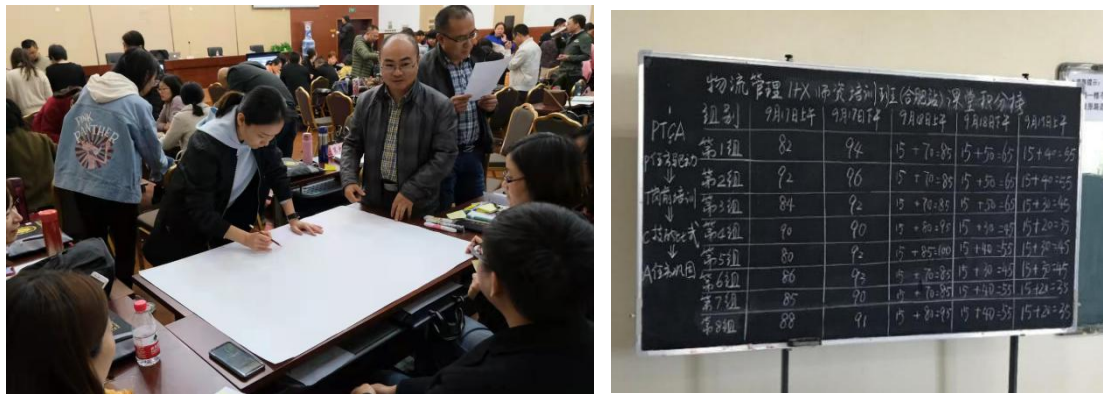 PINK
PANTHER
物流管理 1+X 师资培训班(合肥站)课堂积分榜
组别 9月17日上午 9月17日下午 9月18日上午 9月18日下午 9月19日上午
PTCA
第1组 82 94 15+70=85 15+50=65 15+40=55
P任务驱动
第2组 92 96 15+70=85 15+50=65 15+40=55
T岗前培训
第3组 84 92 15+70=85 15+50=65 15+30=45
第4组 90 90 15+80=95 15+30=45 15+20=35
C技能比武
第5组 80 92 15+85=100 15+40=55 15+30=45
A任务巩固
第6组 86 93 15+70=85 15+30=45 15+30=45
第7组 85 90 15+70=85 15+40=55 15+20=35
第8组 88 91 15+80=95 15+40=55 15+20=35